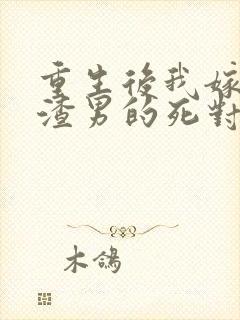 重生後我嫁
渣男的死對
木鴿